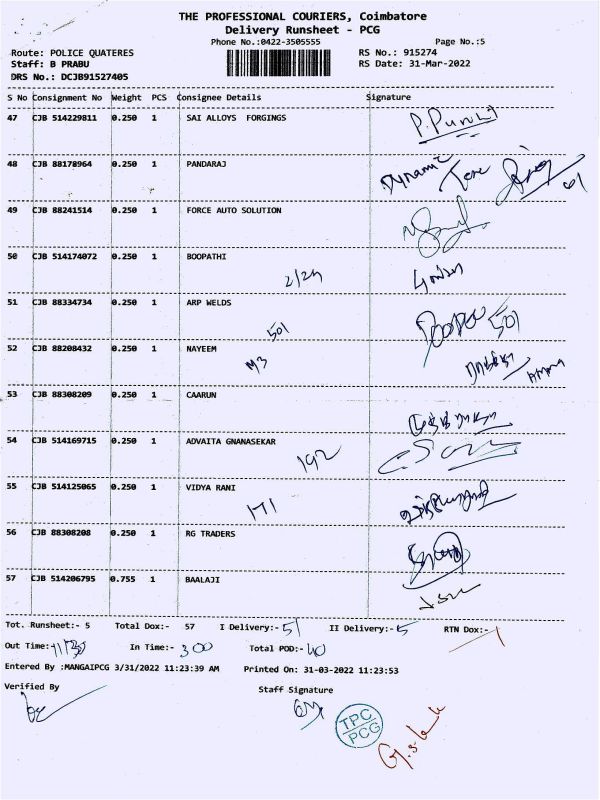 THE PROFESSIONAL COURIERS, Coimbatore
Delivery Runsheet - PCG
Phone No.:0422-3505555 Page No.:5
Route: POLICE QUATERES RS No.: 915274
Staff: B PRABU RS Date: 31-Mar-2022
DRS No.: DCJB91527405
S No Consignment No Weight PCS Consignee Details Signature
47 CJB 514229811 0.250 1 SAI ALLOYS FORGINGS
48 CJB 88178964 0.250 1 PANDARAJ
49 CJB 88241514 0.250 1 FORCE AUTO SOLUTION
50 CJB 514174072 0.250 1 BOOPATHI
51 CJB 88334734 0.250 1 ARP WELDS
501 501
52 CJB 88208432 0.250 1 NAYEEM
M3
53 CJB 88308209 0.250 1 CAARUN
54 CJB 514169715 0.250 1 ADVAITA GNANASEKAR
192
55 CJB 514125065 0.250 1 VIDYA RANI
171
56 CJB 88308208 0.250 1 RG TRADERS
57 CJB 514206795 0.755 1 BAALAJI
Tot. Runsheet:- 5 Total Dox:- 57 I Delivery:- 51 II Delivery:- 5 RTN Dox:- 1
Out Time:- 11/30 In Time:- 3 00 Total POD:- 40
Entered By :MANGAIPCG 3/31/2022 11:23:39 AM Printed On: 31-03-2022 11:23:53
Verified By Staff Signature
TPC
PCG